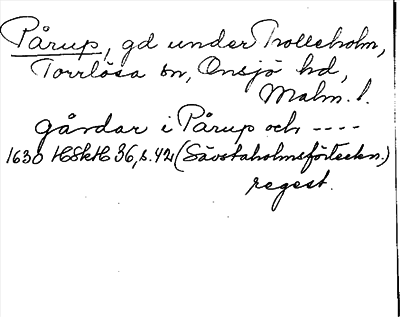 Pårup, gd under Trolleholm,
Torrlösa sn, Onsjö hd,
Malm. l.
gårdar i Pårup och ----
1630 HSkH 36, s. 42 (Sävstaholmsförteckn.)
regest.